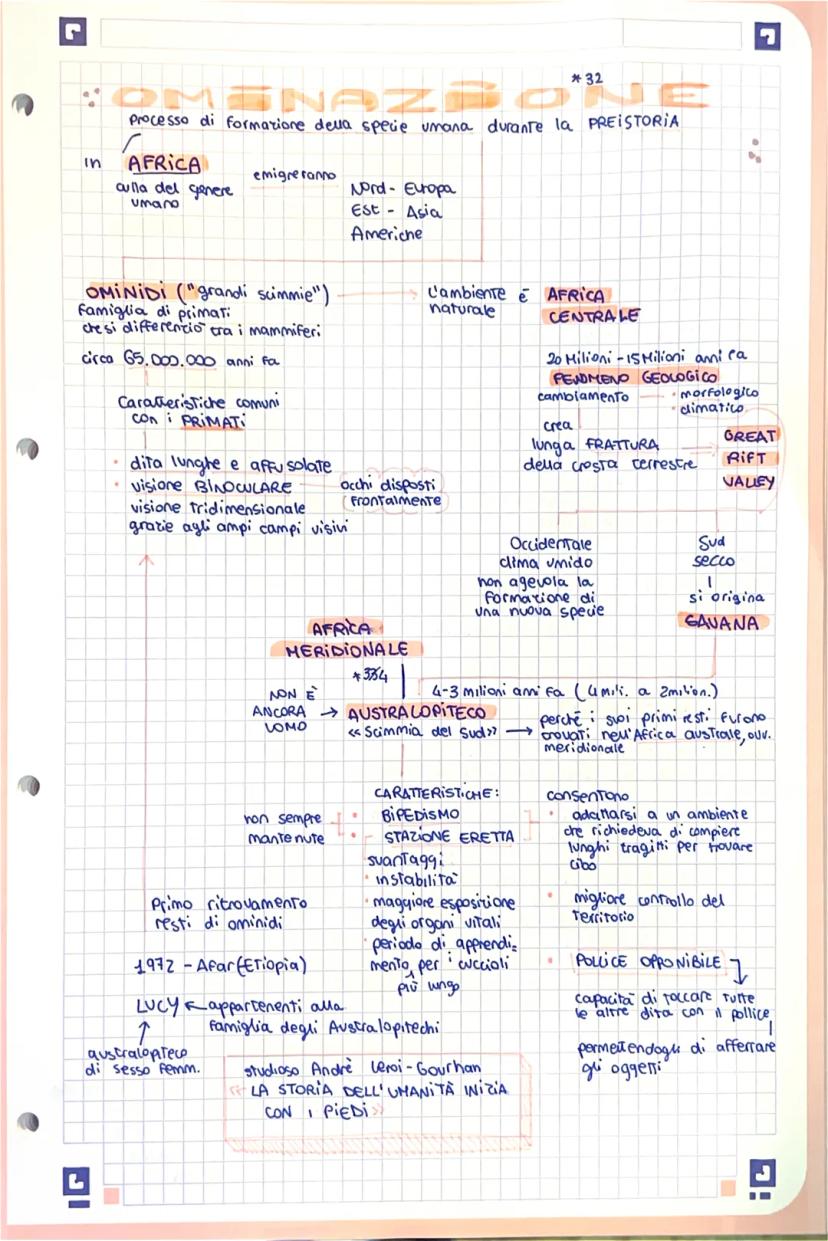 *32
OMINAZIONE
processo di formazione della specie umana durante la PREISTORIA
in AFRICA
culla del genere
umano
emigreranno
Nord - Europa
Est - Asia
Americhe
OMINIDI ("grandi scimmie")
famiglia di primati
che si differenziò tra i mammiferi
circa 65.000.000 anni fa
L'ambiente è AFRICA
naturale CENTRALE
20 Milioni - 15 Milioni anni fa
FENOMENO GEOLOGICO
cambiamento
· morfologico
· climatico
crea
lunga FRATTURA
della crosta terrestre
GREAT
RIFT
VALLEY
Caratteristiche comuni
con i PRIMATI
· dita lunghe e affusolate
· visione BINOCULARE
occhi disposti
frontalmente
visione tridimensionale
grazie agli ampi campi visivi
Occidentale
clima umido
non agevola la
formazione di
una nuova specie
Sud
secco
si origina
SAVANA
AFRICA
MERIDIONALE
4-3 milioni anni fa (4 mili. a 2 milion.)
NON È
ANCORA → AUSTRALOPITECO
UOMO
«Scimmia del Sud» →
perché i suoi primi resti furono
trovati nell'Africa australe, ovv.
meridionale
CARATTERISTICHE:
non sempre
mantenute
· BIPEDISMO
· STAZIONE ERETTA
svantaggi
· instabilità
· maggiore esposizione
degli organi vitali
· periodo di apprendi=
mento per i cuccioli
più lungo
consentono
· adattarsi a un ambiente
che richiedeva di compiere
lunghi tragitti per trovare
cibo
· migliore controllo del
territorio
· POLLICE OPPONIBILE
capacità di toccare tutte
le altre dita con il pollice
permettendogli di afferrare
gli oggetti
Primo ritrovamento
resti di ominidi
1972 - Afar (ETiopia)
LUCY ← appartenenti alla
famiglia degli Australopitechi
australopiteco
di sesso femm.
studioso Andrè Leroi-Gourhan
«LA STORIA DELL'UMANITÀ INIZIA
CON I PIEDI»